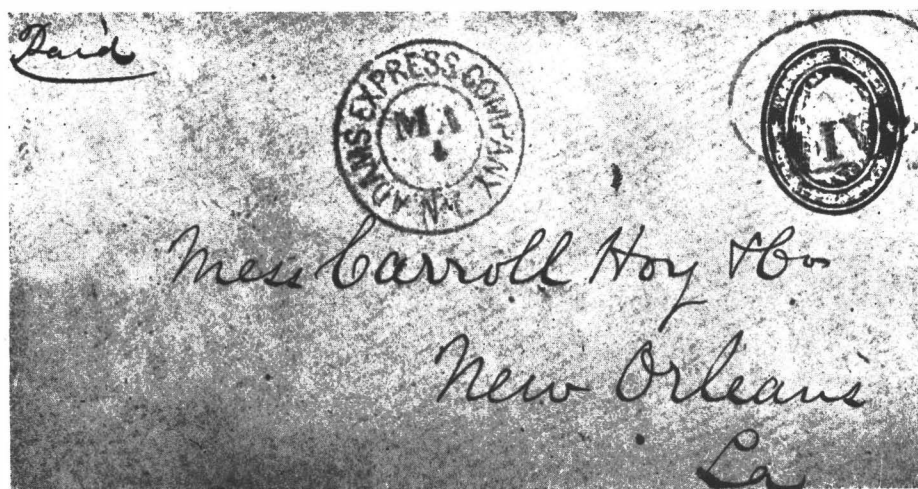 Paid
ADAMS EXPRESS COMPANY
MA
4
Mess Carroll Hoy & Co
New Orleans
La